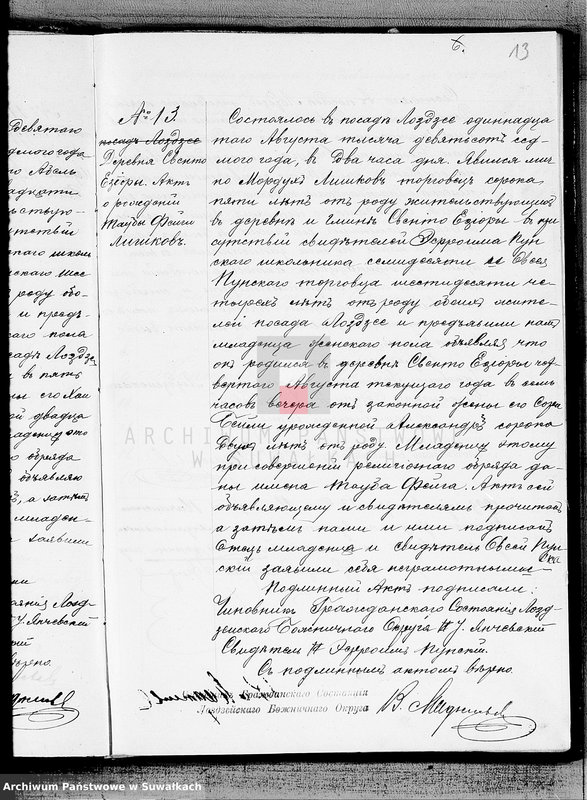 6.
13
№ 13.
посадъ Лоздзее
Деревня Свенто
Езіоры. Актъ
о рожденіи
Таубы Фейги
Лишковъ.
Состоялось въ посадѣ Лоздзее одиннадца
таго Августа тысяча девятьсотъ сед-
мого года, въ два часа дня. Явился лич-
но Мордухъ Лишковъ торговецъ сорока
пяти лѣтъ отъ роду жительствующій
въ деревнѣ и гминѣ Свенто Езіоры въ при
сутствіи свидѣтелей Эфроима Пун
скаго школьника семидесяти и Овсея
Пунскаго торговца шестидесяти че-
тырехъ лѣтъ отъ роду обоихъ жите-
лей посада Лоздзее и предъявилъ намъ
младенца женскаго пола объявляя что
онъ родился въ деревнѣ Свенто Езіоры чет
вертого Августа текущаго года въ семь
часовъ вечера отъ законной жены его Соры
урожденной Александръ сорока
двухъ лѣтъ отъ роду. Младенцу этому
при совершеніи религіознаго обряда да-
ны имена Тауба Фейга. Актъ сей
объявляющему и свидѣтелямъ прочитанъ
а затѣмъ нами и ними подписанъ
Отецъ младенца и свидѣтель Овсей Пун
скій заявили себя неграмотными
Подлинный Актъ подписали:
Чиновникъ Гражданскаго Состоянія Лозд-
зейскаго Божничнаго Округа У. Янчевскій
Свидѣтель Эфроимъ Пунскій.
Съ подлиннымъ актомъ вѣрно.
Гражданскаго Состоянія
Лоздзейскаго Божничнаго Округа
девятаго
дмого года
го Абель
адцати
ьствую-
утствіи
скаго школь
роду обо-
и предъ-
го пола
садѣ Лоздзее
въ пять
ны его Хаи
ой двадца
младенцу это
о обряда
объявляю
а затѣмъ
младен-
заявили
Лозд-
У. Янчевскій
вѣрно.
ARCHIWUM PAŃSTWOWE
W SUWAŁKACH
Archiwum Państwowe w Suwałkach